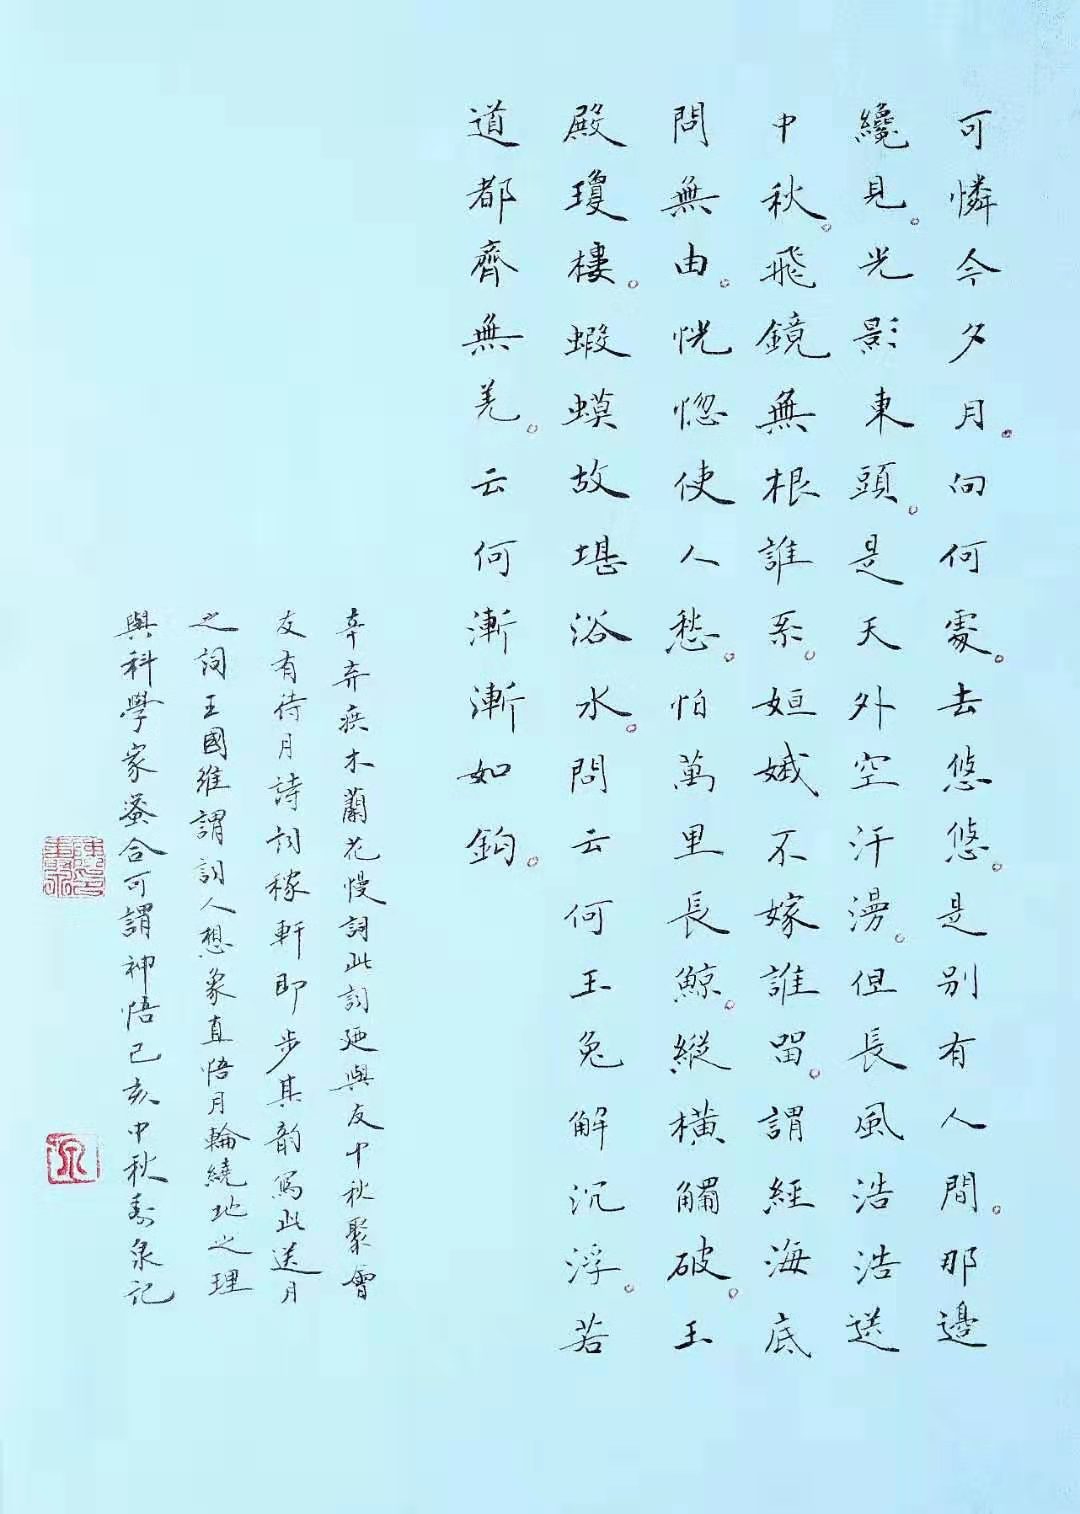 可憐今夕月。向何處。去悠悠。是別有人間。那邊
纔見。光影東頭。是天外空汗漫。但長風浩浩送
中秋。飛鏡無根誰系。姮娥不嫁誰留。謂經海底
問無由。恍惚使人愁。怕萬里長鯨。縱橫觸破。玉
殿瓊樓。蝦蟆故堪浴水。問云何玉兔解沉浮。若
道都齊無恙。云何漸漸如鈎。
辛弃疾木蘭花慢詞此詞廼與友中秋聚會
友有待月詩詞稼軒即步其韵寫此送月
之詞王國維謂詞人想象直悟月輪繞地之理
與科學家蜜合可謂神悟己亥中秋壽泉記